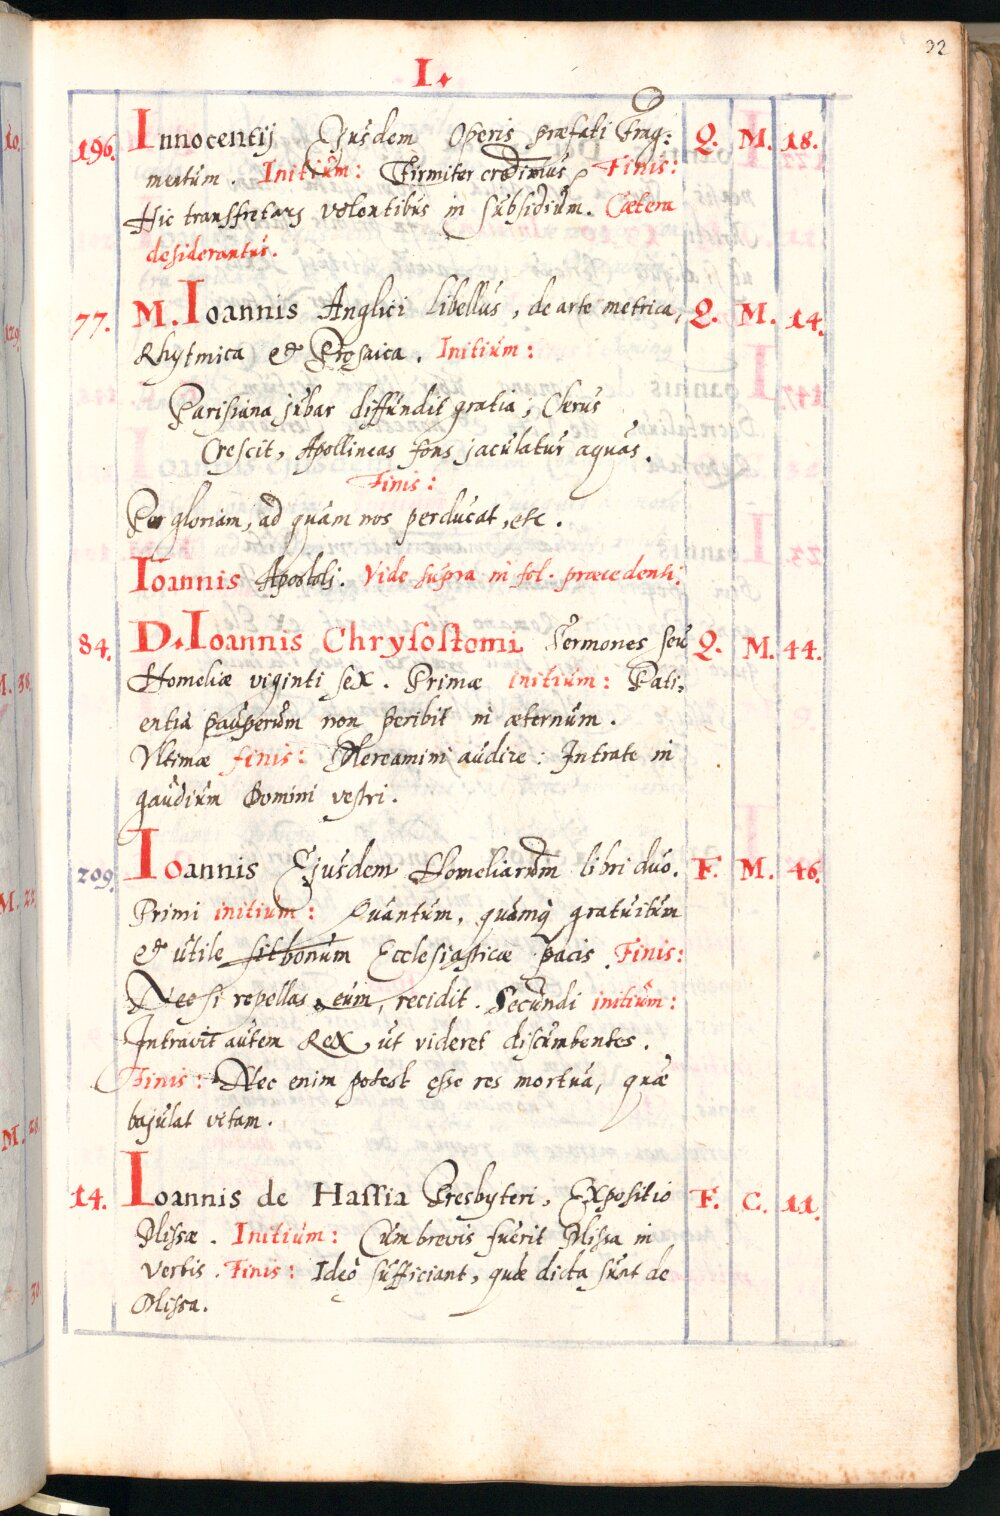 32
I.
196. Innocentij Ejusdem Operis præfati Frag: Q. M. 18.
mentum. Initium: Firmiter credimus, Finis:
Hic transfretare volentibus in subsidium. Cætera
desiderantur.
77. M. Ioannis Anglici libellus, de arte metrica, Q. M. 14.
Rhytmica et Prosaica. Initium:
Parisiana jubar diffundit gratia; Clerus
Crescit, Apollineas fons jaculatur aquas.
Finis:
Per gloriam, ad quam nos perducat, etc.
Ioannis Apostoli. Vide supra in fol. præcedenti.
84. D. Ioannis Chrysostomi Sermones seu Q. M. 44.
Homeliæ viginti sex. Primæ initium: Pati,
entia pauperum non peribit in æternum.
Vltimæ finis: Mereamini audire: Intrate in
gaudium Domini vestri.
209. Ioannis Ejusdem Homeliarum libri duo. F. M. 46.
Primi initium: Quantum, quamq gratuitum
et utile sit bonum Ecclesiasticæ pacis. Finis:
Nec si repellas eum, recidit. Secundi initium:
Intravit autem Rex, ut videret discumbentes.
Finis: Nec enim potest esse res mortua, quæ
bajulat vitam.
14. Ioannis de Hassia Presbyteri, Expositio F. C. 11.
Missæ. Initium: Cum brevis fuerit Missa in
verbis. Finis: Ideo sufficiant, quæ dicta sunt de
Missa.